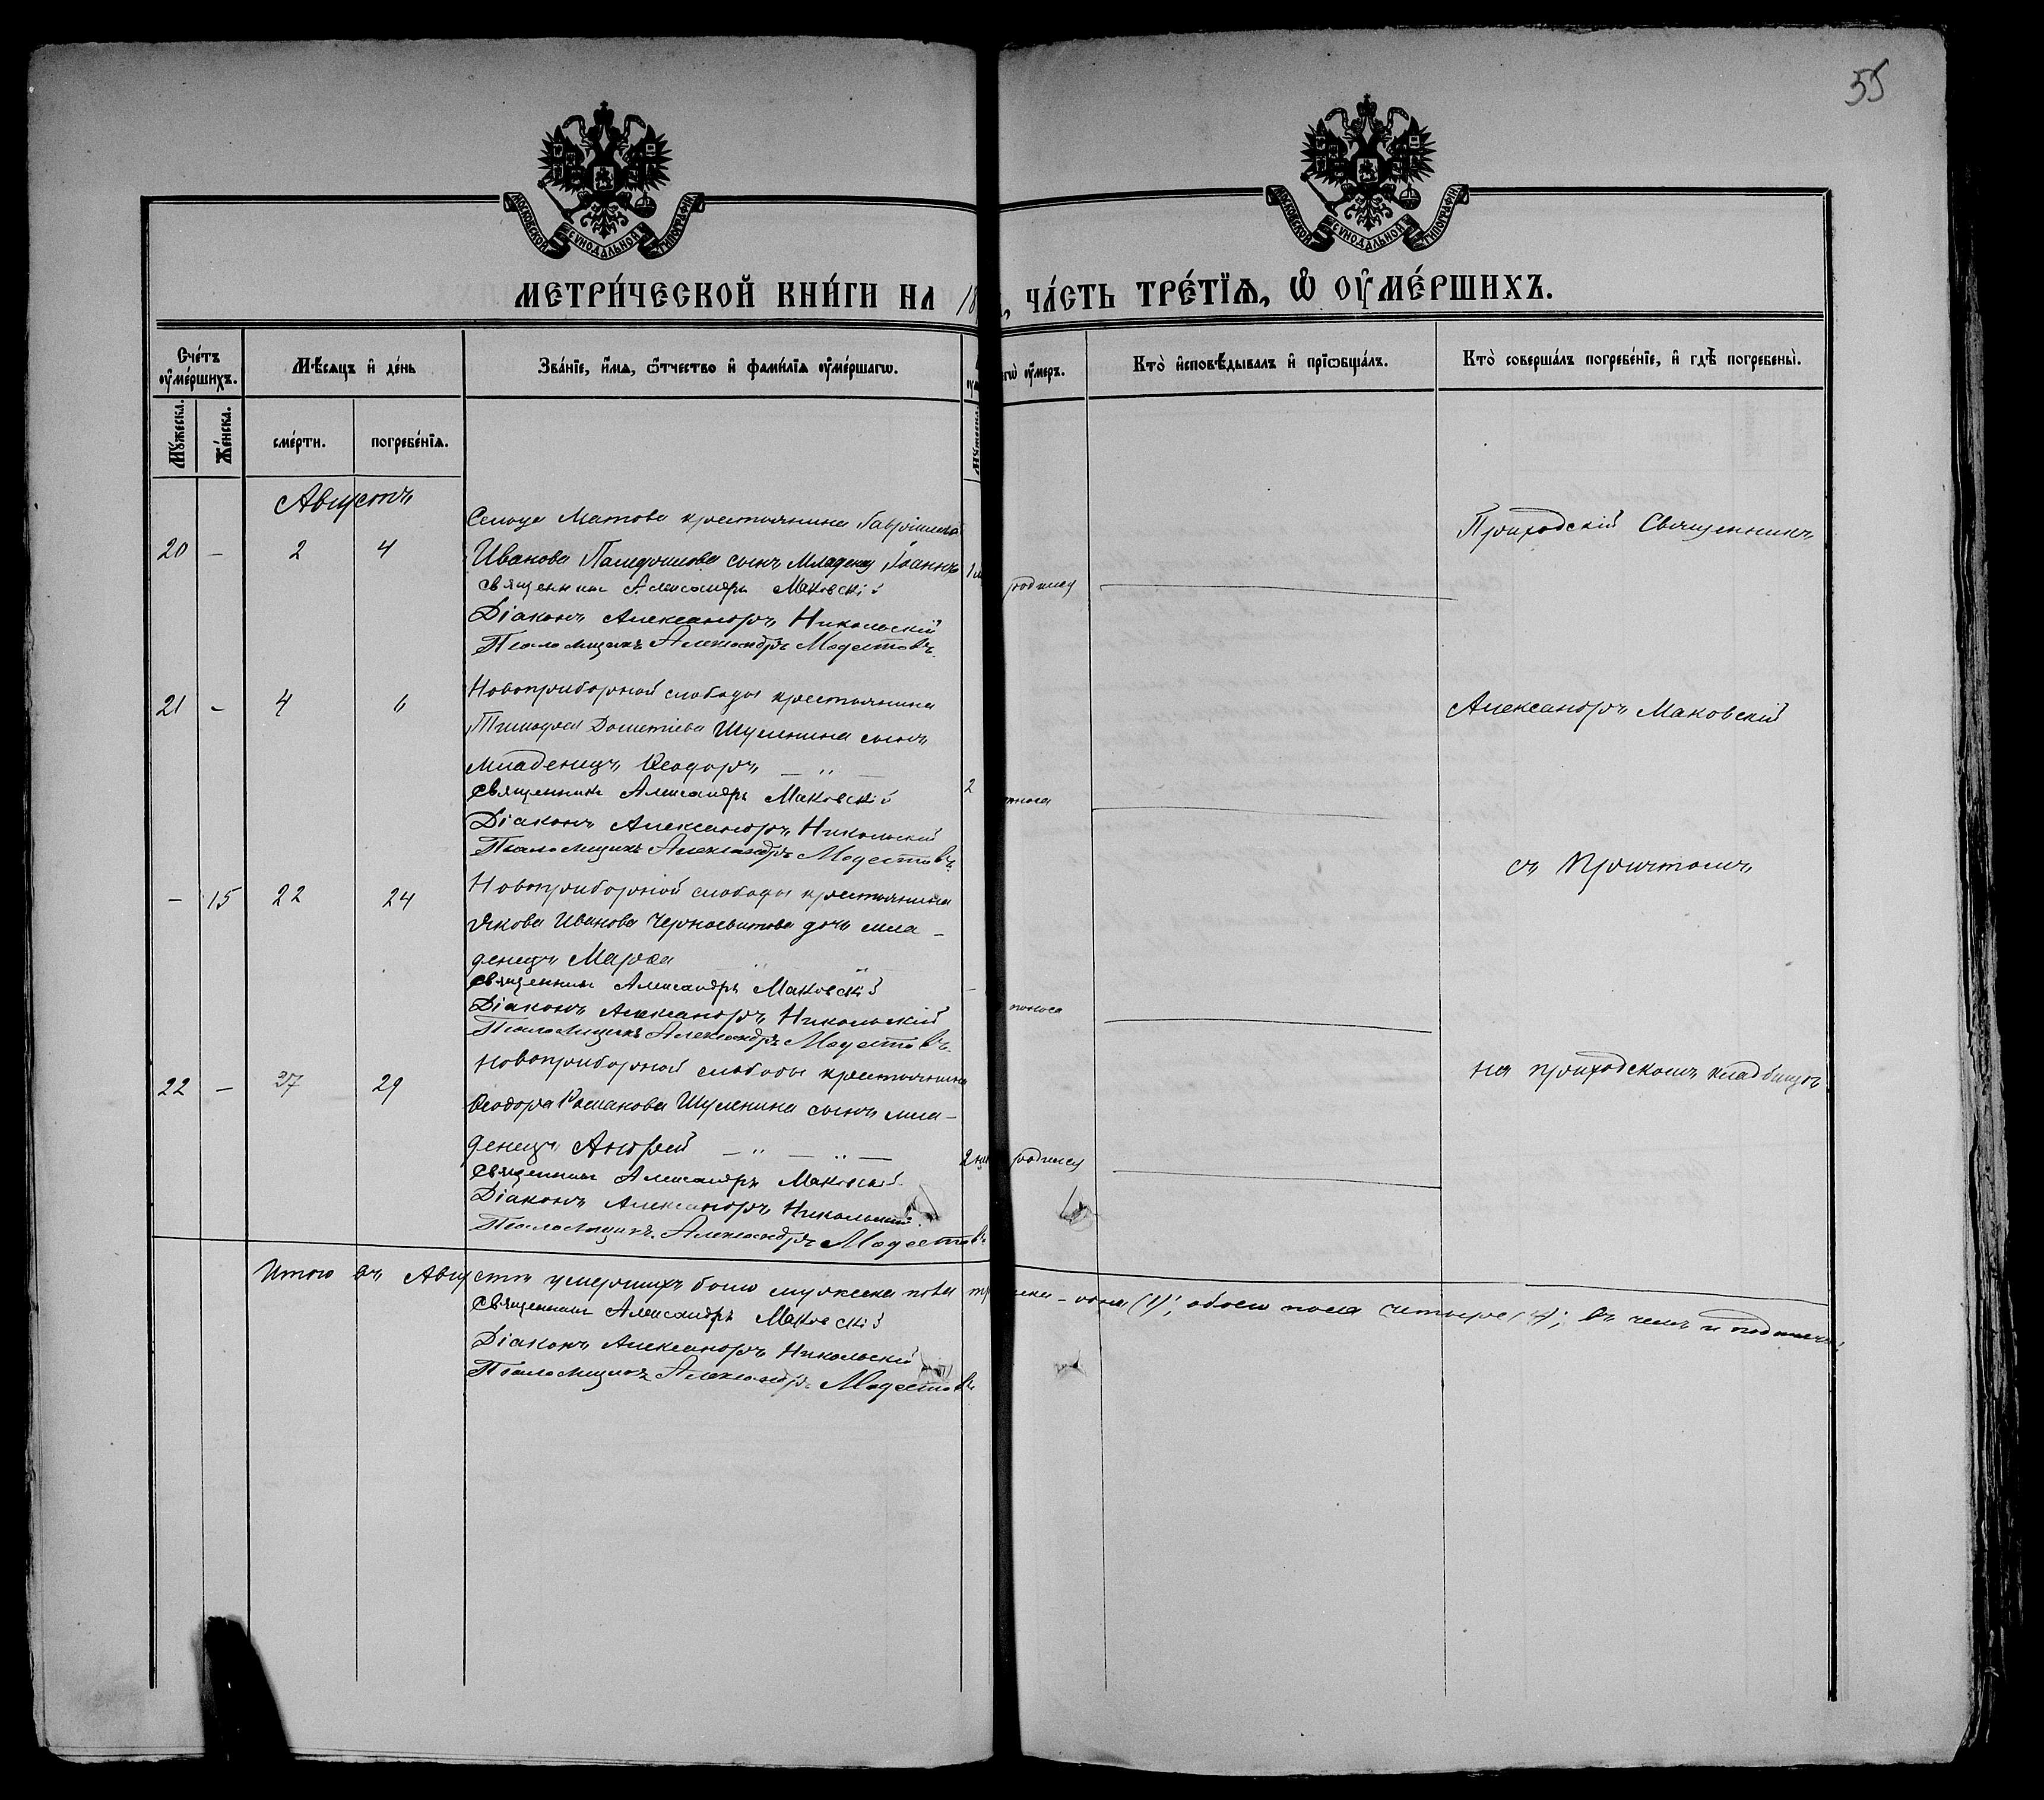 55
МОСКОВСКОЙ СѴНОДАЛЬНОЙ ТИПОГРАФІИ
МОСКОВСКОЙ СѴНОДАЛЬНОЙ ТИПОГРАФІИ
МЕТРИ́ЧЕСКОЙ КНИ́ГИ НА 18 , ЧА́СТЬ ТРЕ́ТЇѦ, Ѡ ОУМЕ́РШИХЪ.
Сче́тъ оуме́ршихъ.
Мѣ́сяцъ и де́нь
Зва́нїе, и́мѧ, ѻ́тчество и фами́лїѧ оуме́ршагѡ.
оу́меръ.
Кто̀ и҆сповѣ́дывалъ и҆ прїѡбща́лъ.
Кто̀ соверша́лъ погребе́нїе, и҆ гдѣ̀ погребены̀.
Мꙋ́жеска.
Же́нска.
сме́рти.
погребе́нїѧ.
Августъ
20 - 2 4
Иванова сынъ Младенецъ Іоаннъ
Священникъ Александръ Маковскій
Діаконъ Александръ Никольскій
Псаломщикъ Александръ Модестовъ
Приходскій Священникъ
21 - 4 6
Новоприборной слободы крестьянина
Шуленина сынъ
младенецъ Ѳеодоръ 2
Священникъ Александръ Маковскій
Діаконъ Александръ Никольскій
Псаломщикъ Александръ Модестовъ
Александръ Маковскій
съ Причтомъ
- 15 22 24
Новоприборной слободы крестьянина
Якова Иванова Черносвитова дочь мла-
денецъ Марѳа
Священникъ Александръ Маковскій
Діаконъ Александръ Никольскій
Псаломщикъ Александръ Модестовъ
поноса
22 - 27 29
Новоприборной слободы крестьянина
Ѳеодора Романова Шуленина сынъ мла-
денецъ Андрей
Священникъ Александръ Маковскій
Діаконъ Александръ Никольскій
Псаломщикъ Александръ Модестовъ
на приходскомъ кладбищѣ
Итого въ Августѣ умершихъ было мужеска пола одна (1); обоего пола четыре (4); въ чемъ и
Священникъ Александръ Маковскій
Діаконъ Александръ Никольскій
Псаломщикъ Александръ Модестовъ